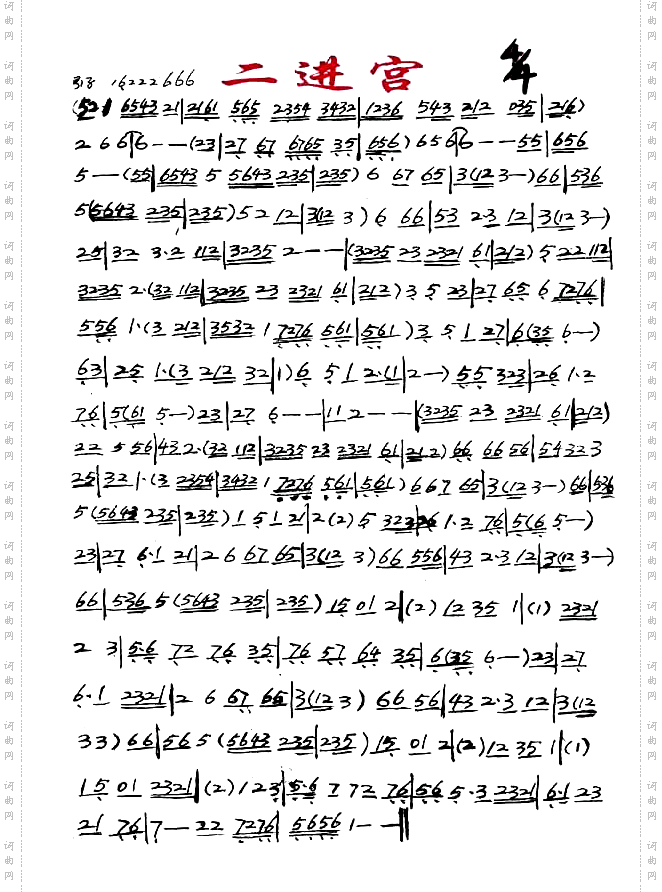 16222666 二进宫 4/4
(521 6543 21|2161 565 2354 3432|1236 543 212 035|216)
2 6 6 6--(23|27 67 6765 35|656) 6 5 6 6--55|656
5--(55|6543 5 5643 235|235) 6 67 65|3(12 3-)66|536
5(5643 235|235) 5 2 12|3(12 3) 6 66|53 2·3 12|3(12 3-)
25|32 3·2 112|3235 2--|(3235 23 2321 61|212) 5 22 112|
3235 2·(32 112|3235 23 2321 61|212) 3 5 23|27 65 6 7276|
556 1·(3 212|3532 1 7276 561|561) 3 5 1 27|6(35 6-)
63|25 1·(3 212 32|1) 6 5 1 2·(1|2-) 55 323|26 1·2
76|5(61 5-) 23|27 6--|11 2--|(3235 23 2321 61|212)
22 5 56|43 2·(32 112|3235 23 2321 61|212) 66 66 56|54 32 3
25|32 1·(3 2354|3432 1 7276 561|561) 6 67 65|3(12 3-) 66|536
5(5643 235|235) 1 5 1 21|2(2) 5 323 26 1·2 76|5(6 5-)
23|27 6·1 21|2 6 67 65|3(12 3) 66 556|43 2·3 12|3(12 3-)
66|536 5(5643 235|235) 15 01 2|(2) 12 35 1|(1) 2321
2 3|5·6 72 76 35|76 57 64 35|6(35 6-) 23|27
6·1 2321|2 6 67 65|3(12 3) 66 56|43 2·3 12|3(12
33) 66|565 (5643 235|235) 15 01 2|(2) 12 35 1|(1)
15 01 2321|(2) 1 2 3|5·6 7 72 76|56 5·3 2321|6·1 23
21 76|7- 22 7276|5656 1--||
词曲网